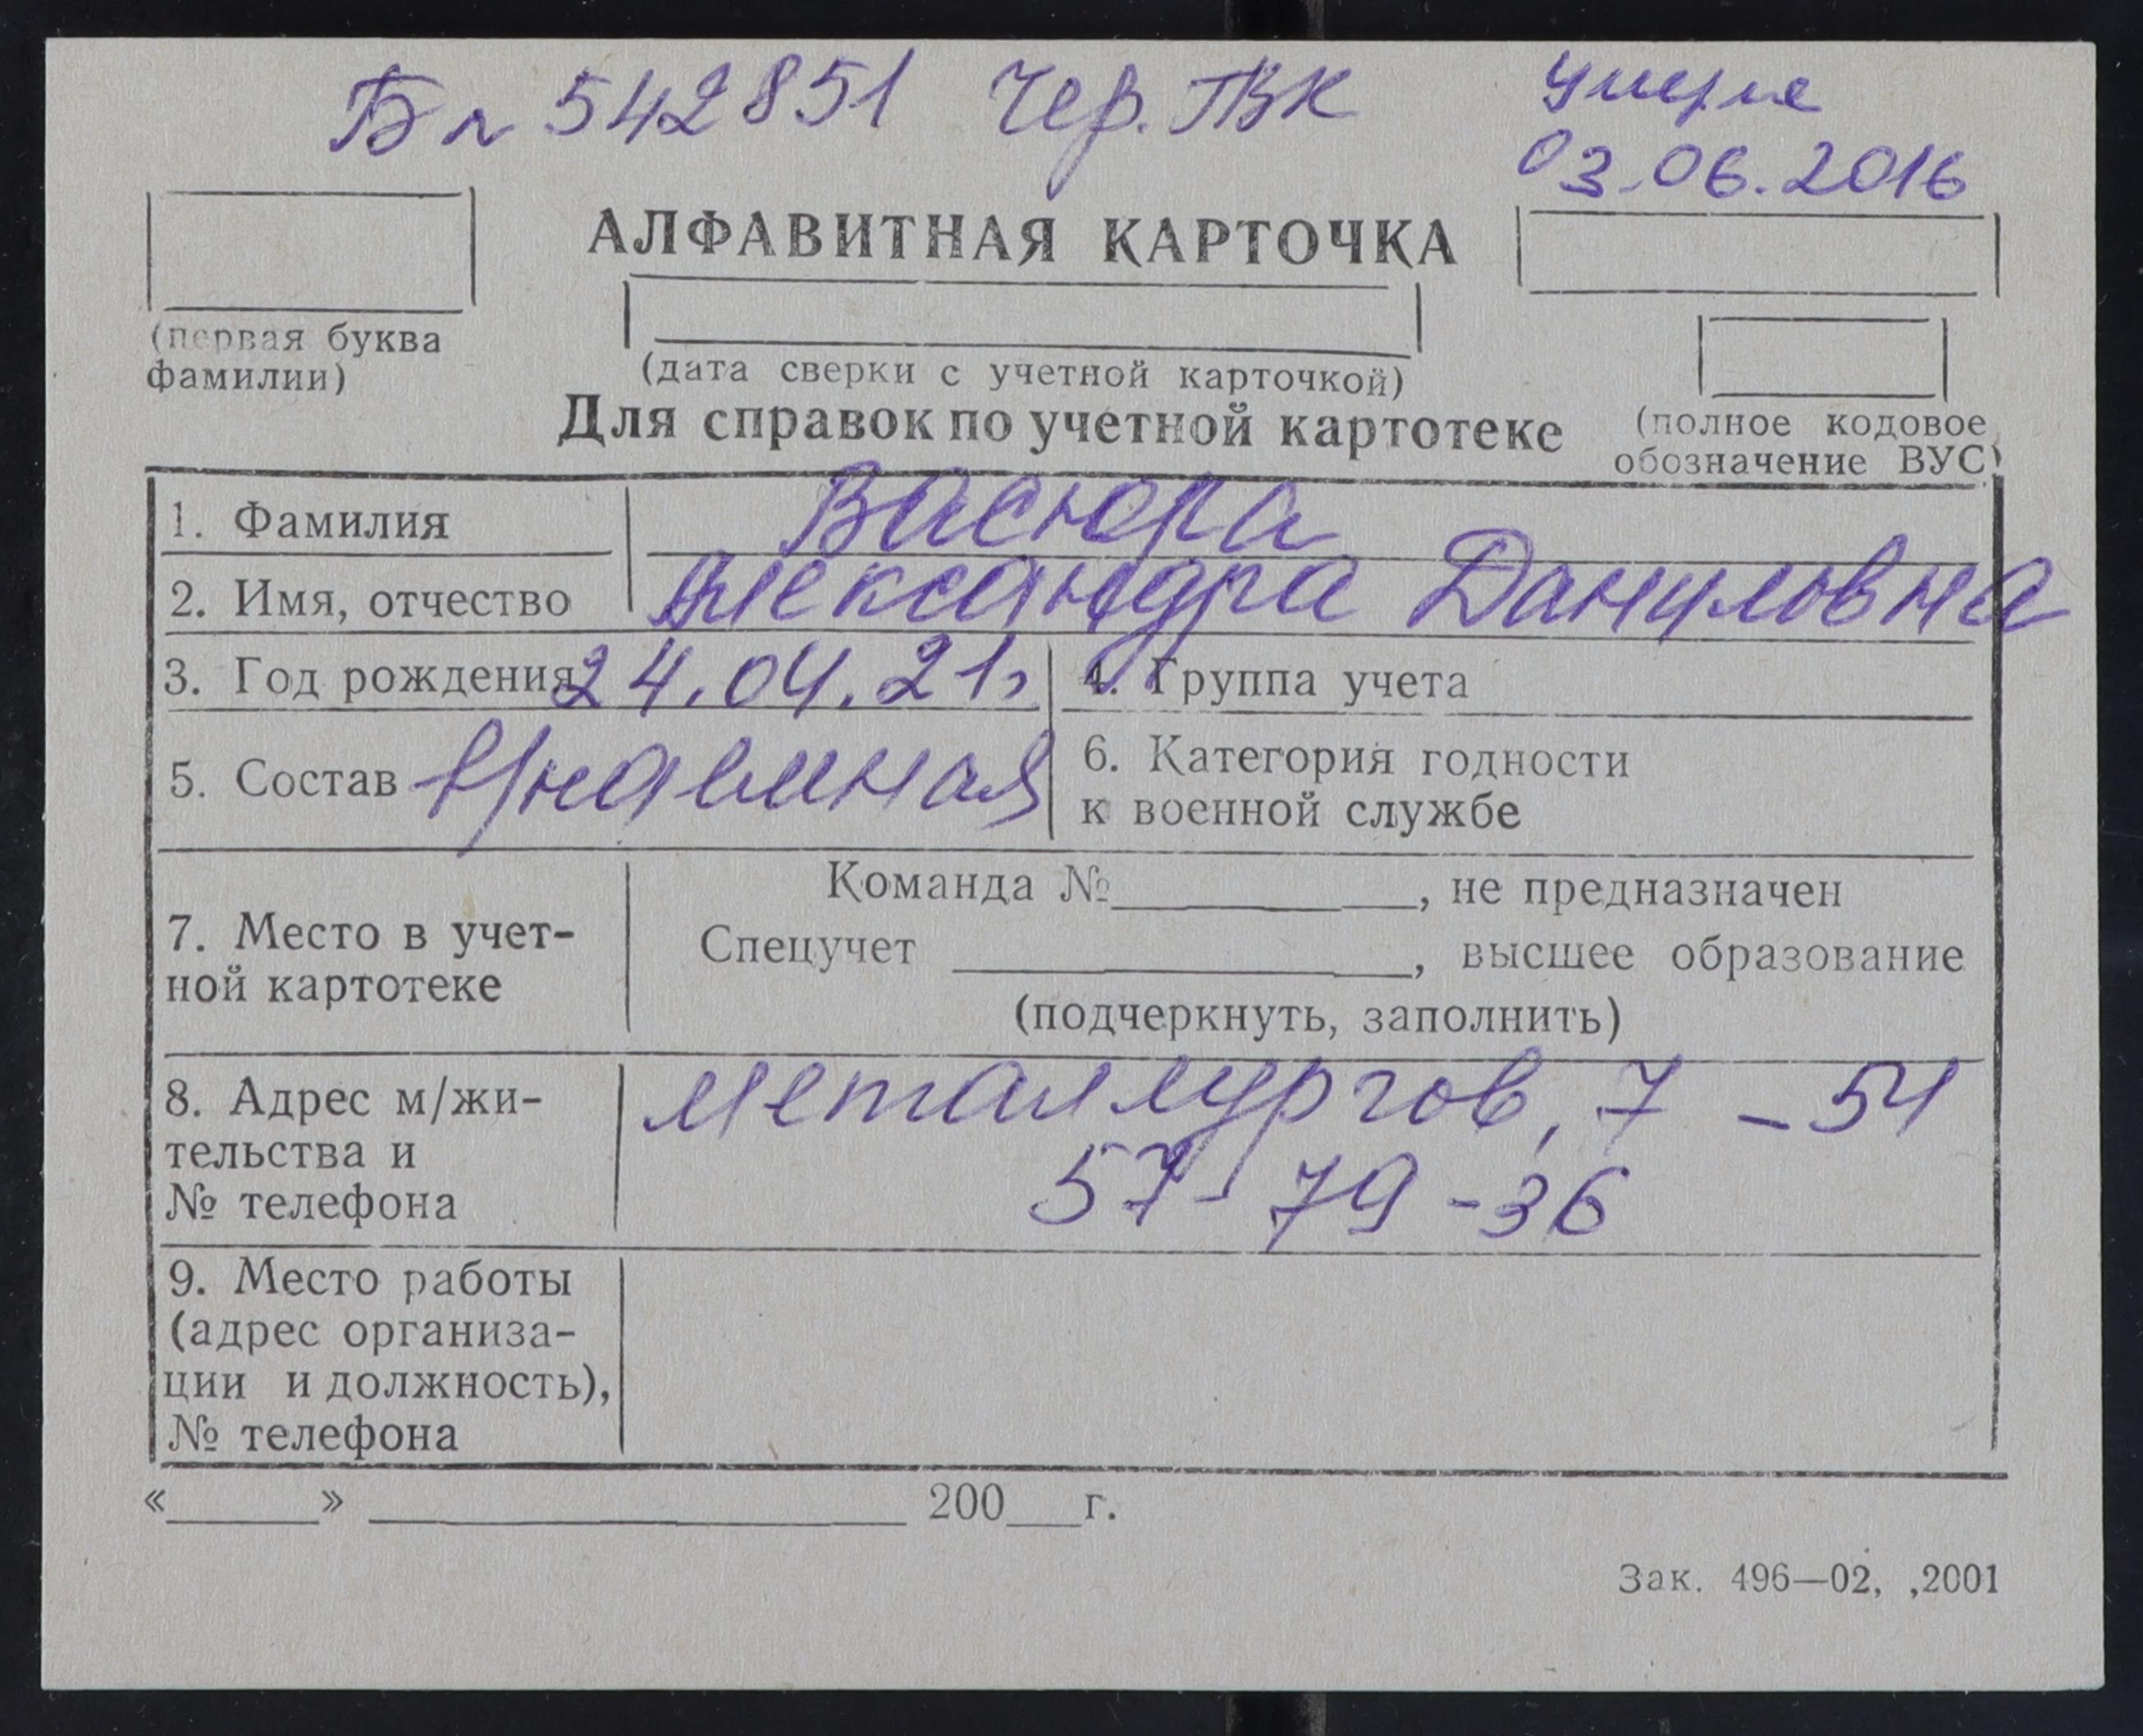 Бп 542851 Чер. ГВК
умерла
03.06.2016
АЛФАВИТНАЯ КАРТОЧКА
(первая буква
фамилии)
(дата сверки с учетной карточкой)
Для справок по учетной картотеке
(полное кодовое
обозначение ВУС)
1. Фамилия Васюра
2. Имя, отчество Александра Даниловна
3. Год рождения 24.04.21г
4. Группа учета
5. Состав
6. Категория годности
к военной службе
7. Место в учет-
ной картотеке
Команда №__________, не предназначен
Спецучет __________, высшее образование
(подчеркнуть, заполнить)
8. Адрес м/жи-
тельства и
№ телефона
Металлургов, 7 - 54
57-79-36
9. Место работы
(адрес организа-
ции и должность),
№ телефона
«_____» __________ 200___г.
Зак. 496—02, ,2001